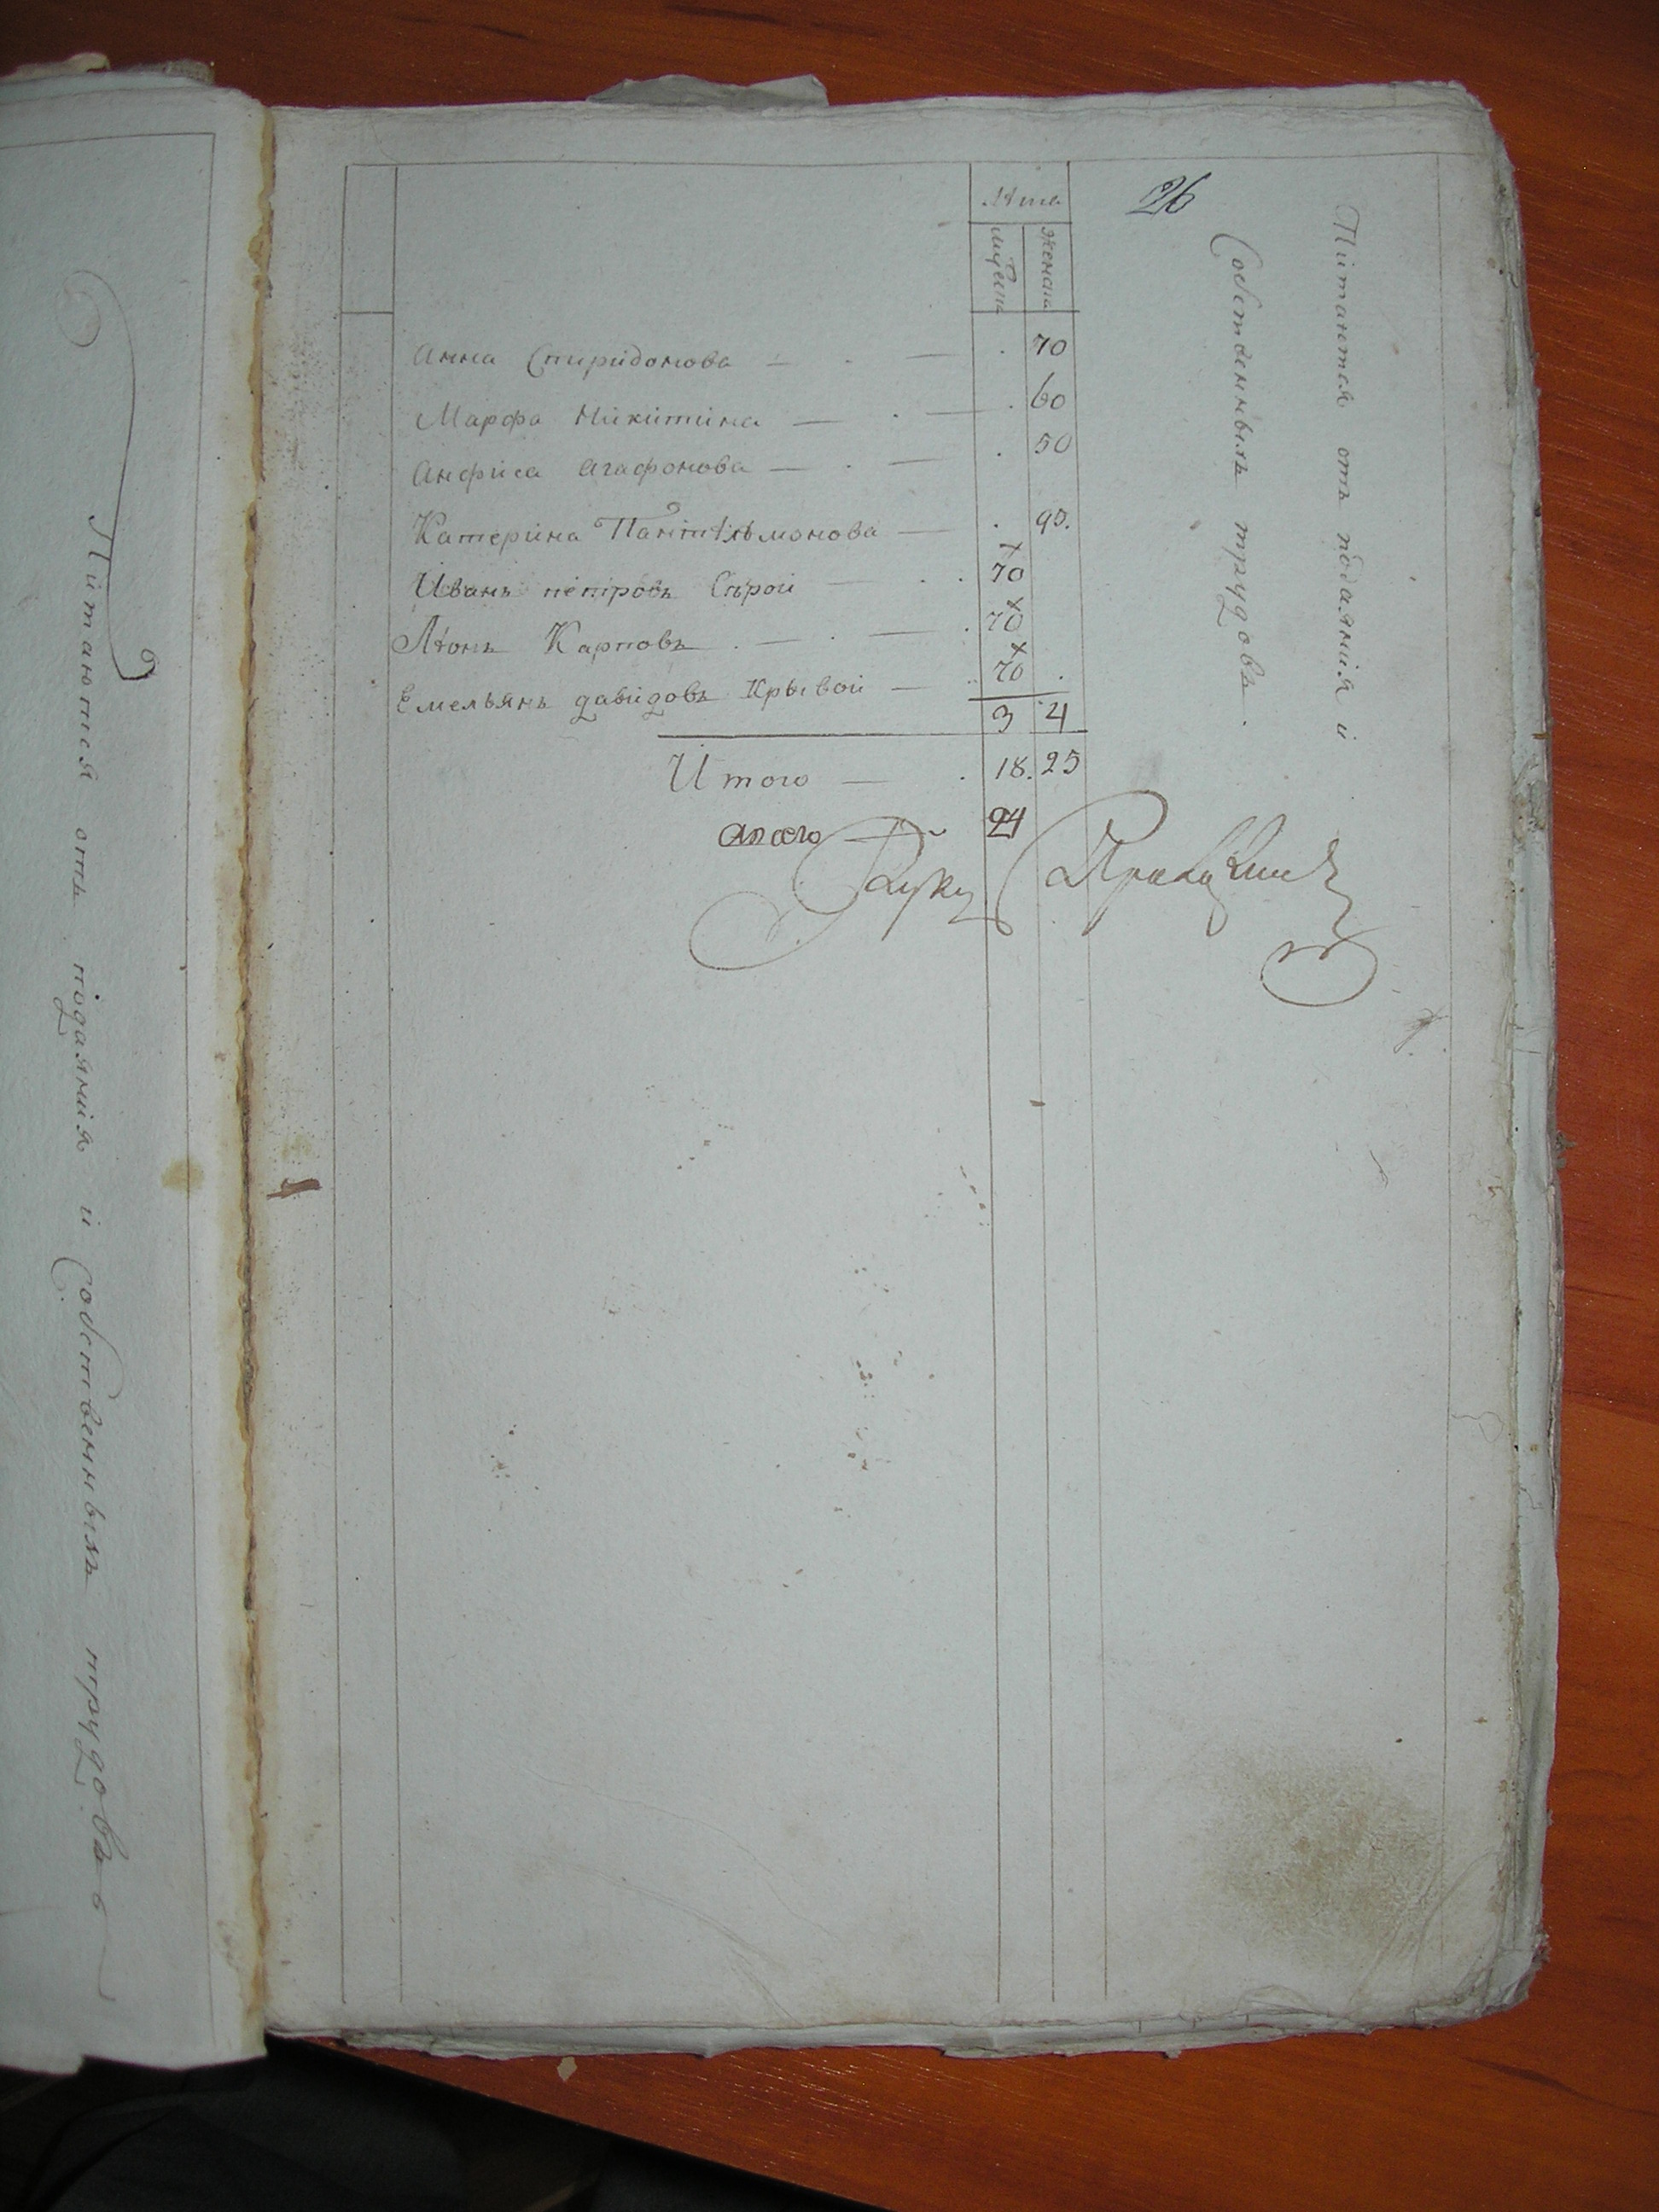 Лѣта
26
мужеска женска
Анна Спиридонова — . — . 70
Марфа Никитина — . — . 60
Анфиса Агафонова — . — . 50
Катерина Пантѣльмонова — . 95.
Иванъ петровъ Сѣрой — . . 70
Лѣонъ Карповъ . — . — . 70
Емельянъ давидовъ Крывой — . 70 .
3 4
Итого — . 18. 25
24
Руку
Питаются отъ подаянія и
Собственныхъ трудовъ.
Питаются отъ подаянія и Собственныхъ трудовъ